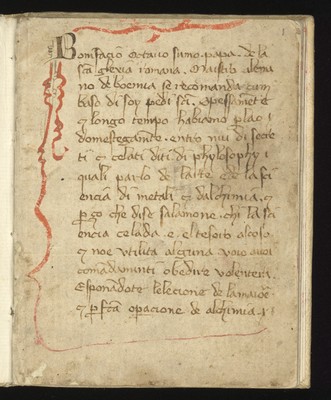 Bonifatio octavo sumo papa de la
sca giexia romana. Maistro alema
no de boemia se recomanda cum
baso di soy pedi sci. Spessamete
q longo tempo habiamo plac
domestegamte entro nui di secre
ti q celati diti di phylosophy i
quali parlo de larte e de la sci
encia di metali q dalchimia. q
p ço che dise salamone. chi la sci
encia celada. e. el tesoro ascoso
q noe utilita alguna voio a voi
comadamenti obedire volentera.
Esponadote lelecione de la maiore
q pfcta operacione de alchimia.